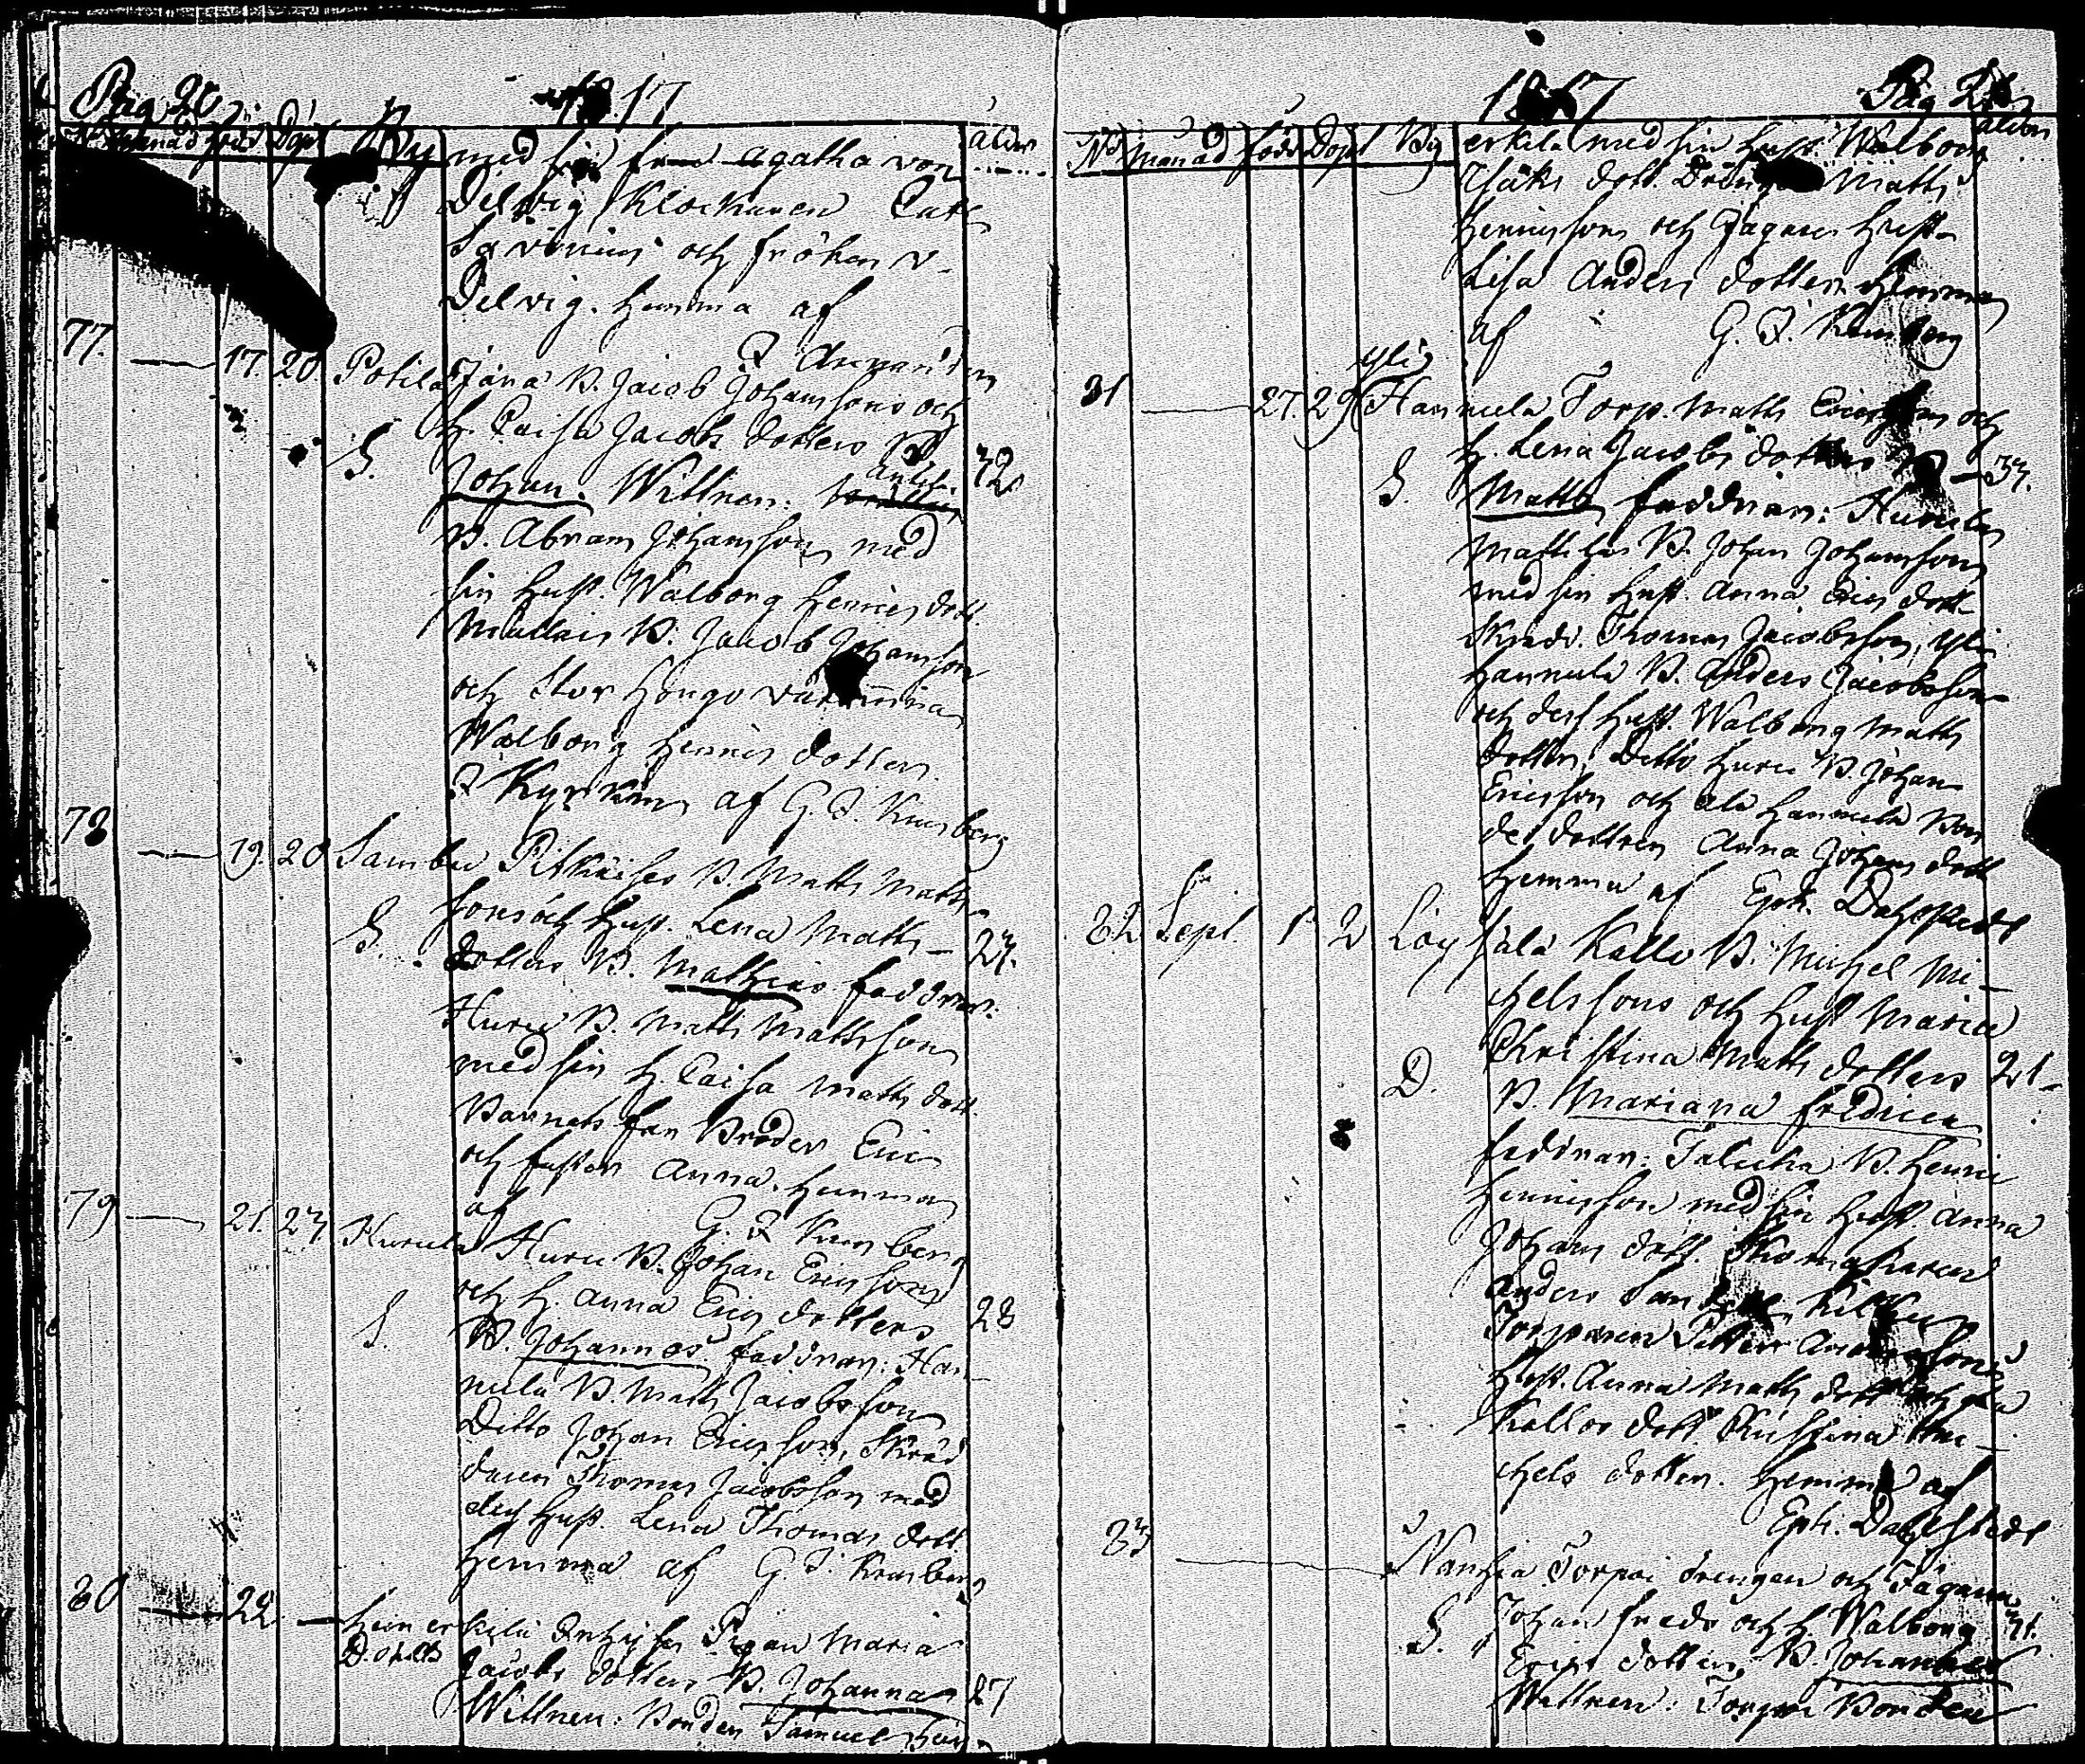 Pag 20 1817
Monad född Döpt By ålder
med sin fru Agatha von
Delwig Klockaren Carl
och fröken v.
Delwig. hemma af
77. — 17. 20. Potila Jana B. Jacob Johanssons och
H. Caisa Jacobs dotters B.
S. Johan. Wittnen: Anttila 32
B. Abram Johansson med
sin hust. Walborg Henrics dott.
B. Jacob Johansson
och Stor Hongo
Walborg Henrics dotter.
I Kyrkan af G. I. Kumberg
78 — 19. 20 Sambu Pitkäises B. Matts Matts
sons och hust. Lena Matts
S. dotters B. Mathias faddrar. 27.
Huru B. Matts Mattsson
med sin H. Caisa Matts dott.
Barnets far Broder Eric
och faster Anna. hemma
af G. I. Kumberg
79 — 21. 23 Kurula Huru B. Johan Ericssons
och H. Anna Erics dotters 28
S. B. Johannes. faddrar: Han
nula B. Matts Jacobsson
Ditto Johan Ericsson, Skräd
daren Thomas Jacobsson med
dess hust. Lena Thomas dott.
hemma af G. I. Kumberg
80 — 22 — Heinerkila Inhyses Pigan Maria
Jacobs dotters B. Johanna 27
Wittnen: Bonden Samuel Hein
1817 Pag 21
No Monad född Döpt By ålder
erkila med sin hust. Walborg
Isaks dott. Drängen Matts
Henricsson och Jägares hust.
Lisa Anders dotter. Hemma
af G. I. Kumberg
Yli
81 — 27. 29 Hannula Torp. Matts Ericsson och
H. Lena Jacobs dotters B — 33.
S. Matts faddrar: Kurula
Mattilas B. Johan Johansson
med sin hust. Anna Erics dott.
Skradd. Thomas Jacobsson, Yli
Hannula B. Anders Jacobsson
och dess hust. Walborg Matts
dotter, Ditto Huru B. Johan
Ericsson och Ala Hannula Bon
de dottren Anna Johans dott
hemma af Eph. Dahlstedt
82. Sept. 1 2 Loy Kallo B. Michel Mi
chelssons och hust Maria
Christina Matts dotters 21
D. B. Mariana fredrica
faddrar: Talicka B. Henric
Henricsson med sin hust Anna
Johans dott. Skomakaren
Anders
Torparen Petter Anderssons
Hust. Anna Matts dott och
Kallos dott Christina Mi
chels dotter. Hemma af
Eph. Dahlstedt
83 — Nanhia Torpoi drengen och Jägaren
S. Johan freds och H. Walborg 31.
Erics dotters B. Johannes
Wittnen: Torpoi Bonden